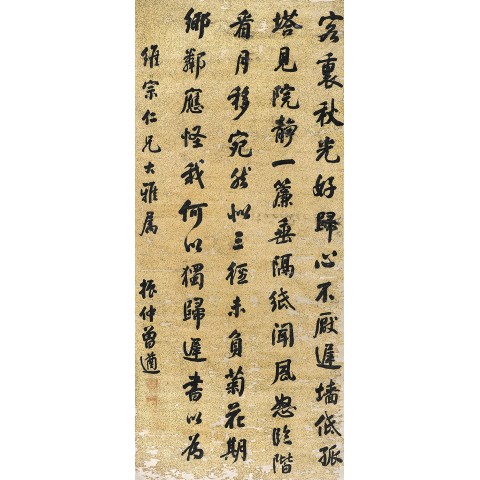 客裏秋光好歸心不厭遲墻低孤
塔見院靜一簾垂隔紙聞風怒臨階
看月移宛然似三徑未負菊花期
鄉鄰應怪我何以獨歸遲書以為
維宗仁兄大雅屬 振仲曾遒